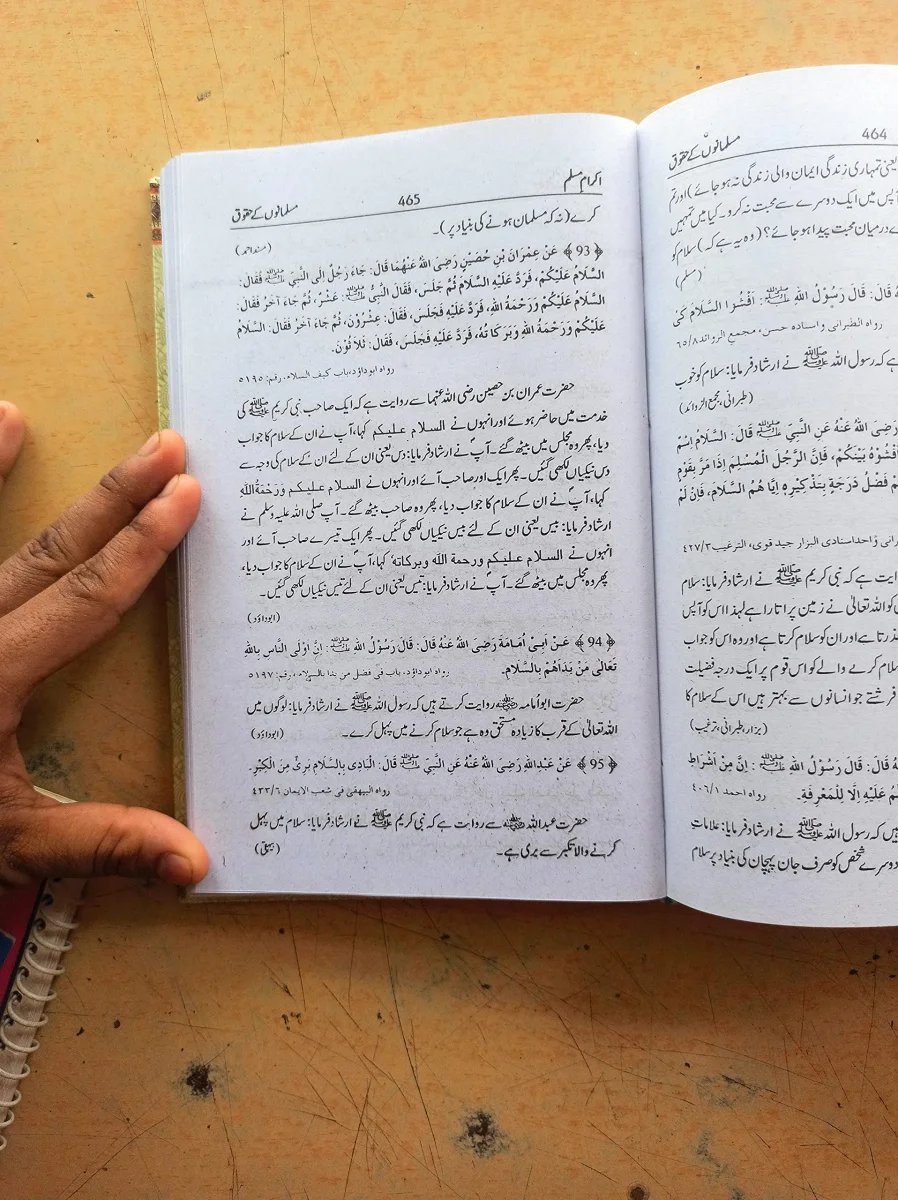 464
مسلمانوں کے حقوق
یعنی تمہاری زندگی ایمان والی زندگی نہ ہو جائے) اور تم
آپس میں ایک دوسرے سے محبت نہ کرو۔ کیا میں تمہیں
درمیان محبت پیدا ہو جائے؟ (وہ یہ ہے کہ) سلام کو
(مسلم)
قَالَ: قَالَ رَسُوْلُ اللهِ ﷺ: اَفْشُوا السَّلَامَ كَيْ
رواه الطبرانى واسناده حسن، مجمع الزوائد ٨/٦٥
ہے کہ رسول اللہ ﷺ نے ارشاد فرمایا: سلام کو خوب
(طبرانی، مجمع الزوائد)
رَضِىَ اللهُ عَنْهُ عَنِ النَّبِيِّ ﷺ قَالَ: السَّلَامُ اِسْمٌ
فَاَفْشُوْهُ بَيْنَكُمْ، فَاِنَّ الرَّجُلَ الْمُسْلِمَ اِذَا مَرَّ بِقَوْمٍ
فَضْلُ دَرَجَةٍ بِتَذْكِيْرِهٖ اِيَّا هُمُ السَّلَامَ، فَاِنْ لَمْ
واحد اسنادى البزار جيد قوى، الترغيب ٣/٤٢٧
روایت ہے کہ نبی کریم ﷺ نے ارشاد فرمایا: سلام
کو اللہ تعالیٰ نے زمین پر اتارا ہے لہذا اس کو آپس
گذرتا ہے اور ان کو سلام کرتا ہے اور وہ اس کو جواب
سلام کرنے والے کو اس قوم پر ایک درجہ فضیلت
فرشتے جو انسانوں سے بہتر ہیں اس کے سلام کا
(بزار، طبرانی، ترغیب)
قَالَ: قَالَ رَسُوْلُ اللهِ ﷺ: اِنَّ مِنْ اَشْرَاطِ
عَلَيْهِ اِلَّا لِلْمَعْرِفَةِ۔ رواه احمد ١/٤٠٦
ہیں کہ رسول اللہ ﷺ نے ارشاد فرمایا: علامات
دوسرے شخص کو صرف جان پہچان کی بنیاد پر سلام
اکرام مسلم
465
مسلمانوں کے حقوق
کرے (نہ کہ مسلمان ہونے کی بنیاد پر)۔
(مسند احمد)
﴿93﴾ عَنْ عِمْرَانَ بْنِ حُصَيْنٍ رَضِىَ اللهُ عَنْهُمَا قَالَ: جَاءَ رَجُلٌ اِلَى النَّبِيِّ ﷺ فَقَالَ:
السَّلَامُ عَلَيْكُمْ، فَرَدَّ عَلَيْهِ السَّلَامَ ثُمَّ جَلَسَ، فَقَالَ النَّبِيُّ ﷺ: عَشْرٌ، ثُمَّ جَاءَ آخَرُ فَقَالَ:
السَّلَامُ عَلَيْكُمْ وَرَحْمَةُ اللهِ، فَرَدَّ عَلَيْهِ فَجَلَسَ، فَقَالَ: عِشْرُوْنَ، ثُمَّ جَاءَ آخَرُ فَقَالَ: السَّلَامُ
عَلَيْكُمْ وَرَحْمَةُ اللهِ وَبَرَكَاتُهُ، فَرَدَّ عَلَيْهِ فَجَلَسَ، فَقَالَ: ثَلَاثُوْنَ.
رواه ابوداؤد، باب كيف السلام، رقم: ٥١٩٥
حضرت عمران بن حصین رضی اللہ عنہما سے روایت ہے کہ ایک صاحب نبی کریم ﷺ کی
خدمت میں حاضر ہوئے اور انہوں نے السلام علیکم کہا، آپ نے ان کے سلام کا جواب
دیا، پھر وہ مجلس میں بیٹھ گئے۔ آپؐ نے ارشاد فرمایا: دس یعنی ان کے لئے ان کے سلام کی وجہ سے
دس نیکیاں لکھی گئیں۔ پھر ایک اور صاحب آئے اور انہوں نے السلام علیکم ورحمۃ اللہ
کہا، آپؐ نے ان کے سلام کا جواب دیا، پھر وہ صاحب بیٹھ گئے۔ آپ صلی اللہ علیہ وسلم نے
ارشاد فرمایا: بیس یعنی ان کے لئے بیس نیکیاں لکھی گئیں۔ پھر ایک تیسرے صاحب آئے اور
انہوں نے السلام علیکم ورحمة الله وبركاته کہا، آپؐ نے ان کے سلام کا جواب دیا،
پھر وہ مجلس میں بیٹھ گئے۔ آپؐ نے ارشاد فرمایا: تیس یعنی ان کے لئے تیس نیکیاں لکھی گئیں۔
(ابوداؤد)
﴿94﴾ عَنْ اَبِىْ اُمَامَةَ رَضِىَ اللهُ عَنْهُ قَالَ: قَالَ رَسُوْلُ اللهِ ﷺ: اِنَّ اَوْلَى النَّاسِ بِاللهِ
تَعَالَى مَنْ بَدَاَهُمْ بِالسَّلَامِ. رواه ابوداؤد، باب فى فضل من بدا بالسلام، رقم: ٥١٩٧
حضرت ابو امامہ رضی اللہ عنہ روایت کرتے ہیں کہ رسول اللہ ﷺ نے ارشاد فرمایا: لوگوں میں
اللہ تعالیٰ کے قرب کا زیادہ مستحق وہ ہے جو سلام کرنے میں پہل کرے۔ (ابوداؤد)
﴿95﴾ عَنْ عَبْدِاللهِ رَضِىَ اللهُ عَنْهُ عَنِ النَّبِيِّ ﷺ قَالَ: الْبَادِئُ بِالسَّلَامِ بَرِئٌ مِنَ الْكِبْرِ.
رواه البيهقى فى شعب الايمان ٦/٤٣٣
حضرت عبداللہ رضی اللہ عنہ سے روایت ہے کہ نبی کریم ﷺ نے ارشاد فرمایا: سلام میں پہل
کرنے والا تکبر سے بری ہے۔ (بیہقی)